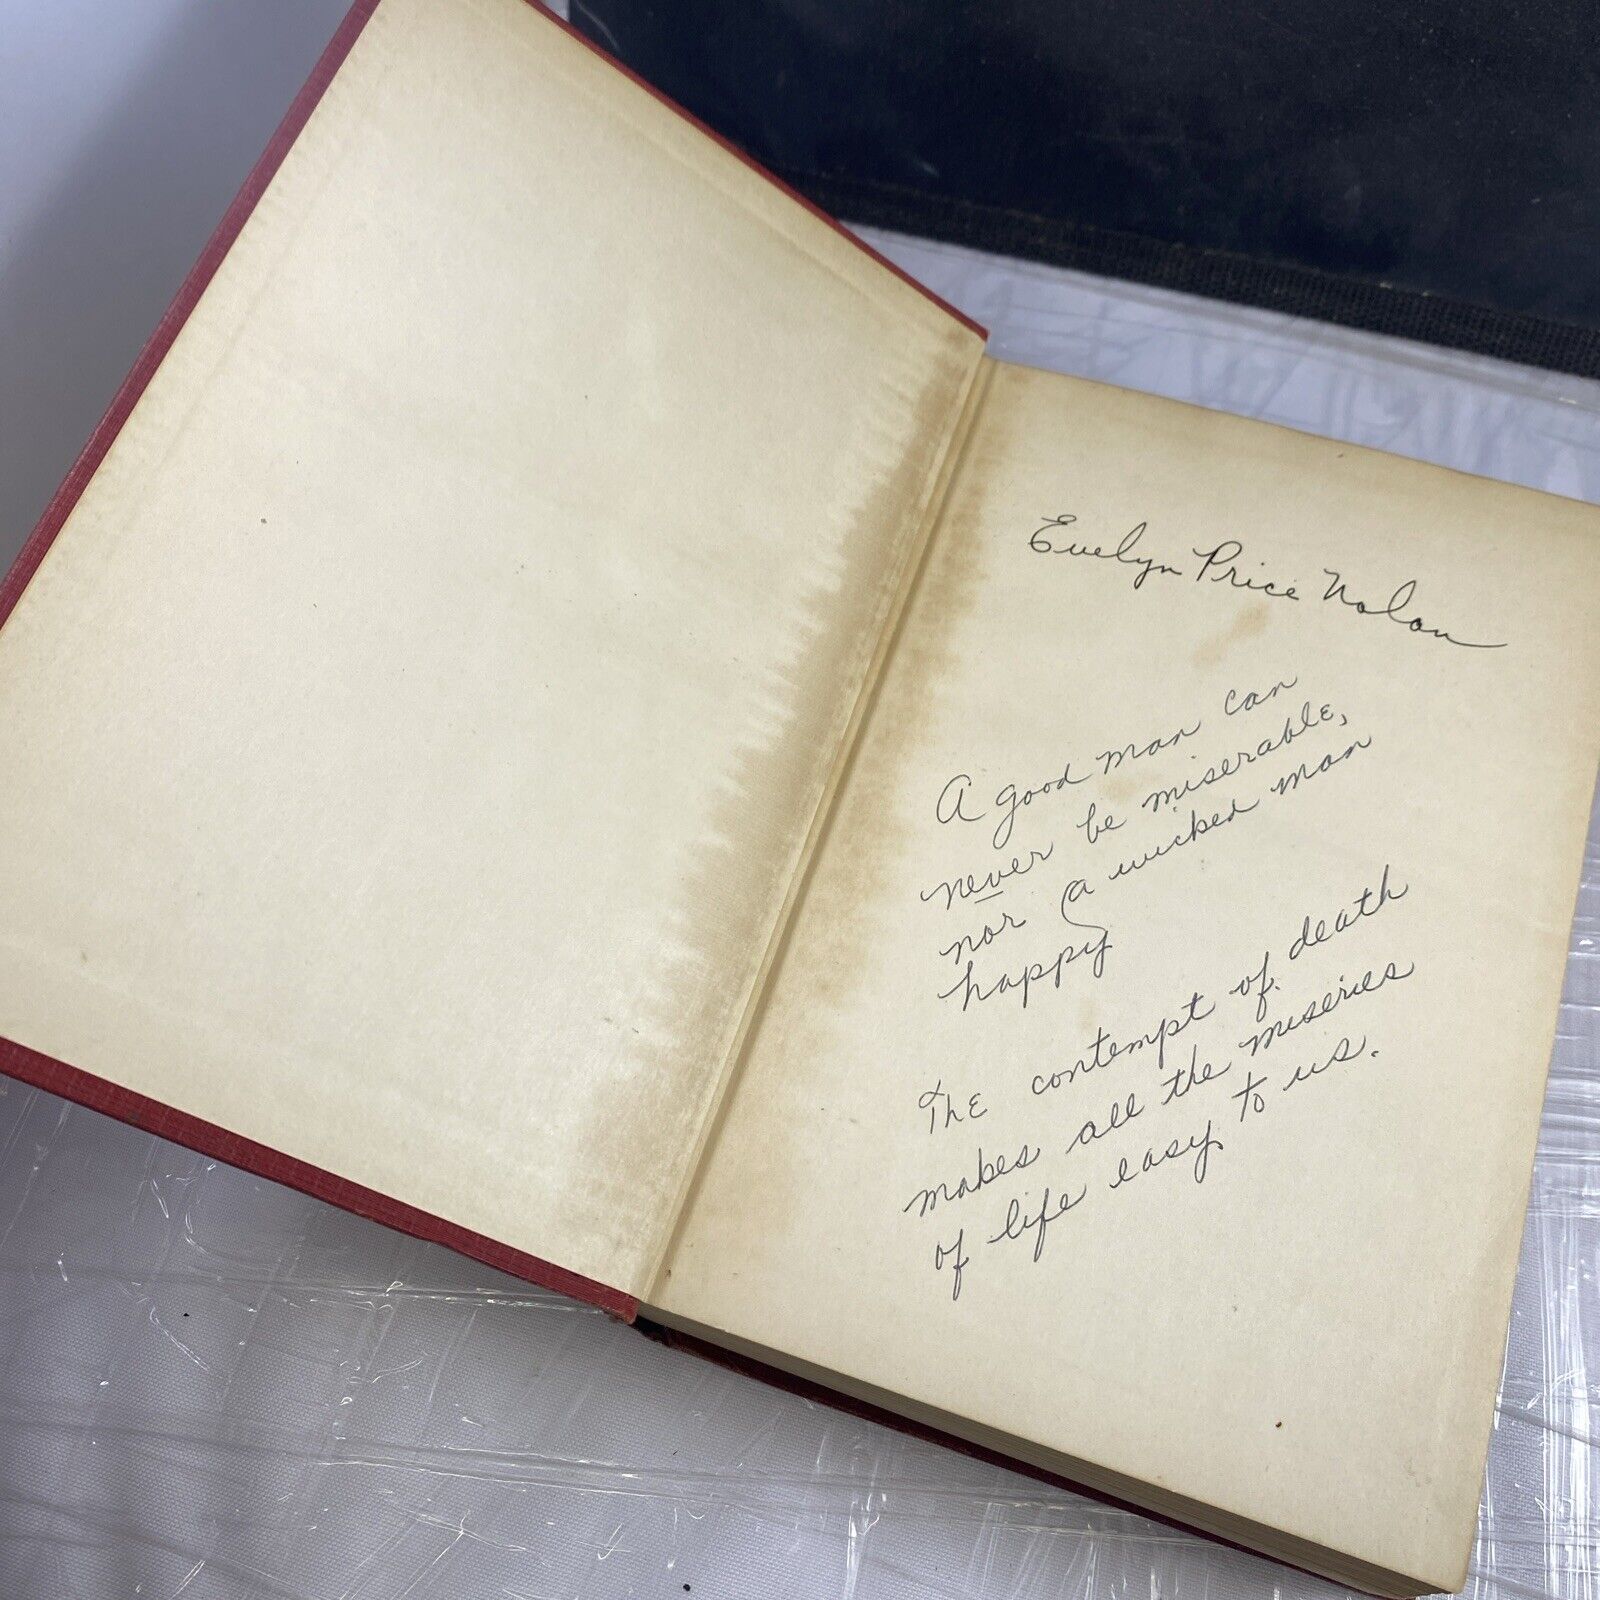 Evelyn Price Nolan
A good man can
never be miserable,
nor a wicked man
happy
The contempt of death
makes all the miseries
of life easy to us.